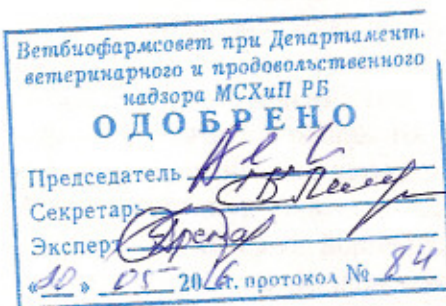 Ветбиофармсовет при Департамент.
ветеринарного и продовольственного
надзора МСХиП РБ
ОДОБРЕНО
Председатель
Секретарь
Эксперт
« » 05 2016г. протокол № 84